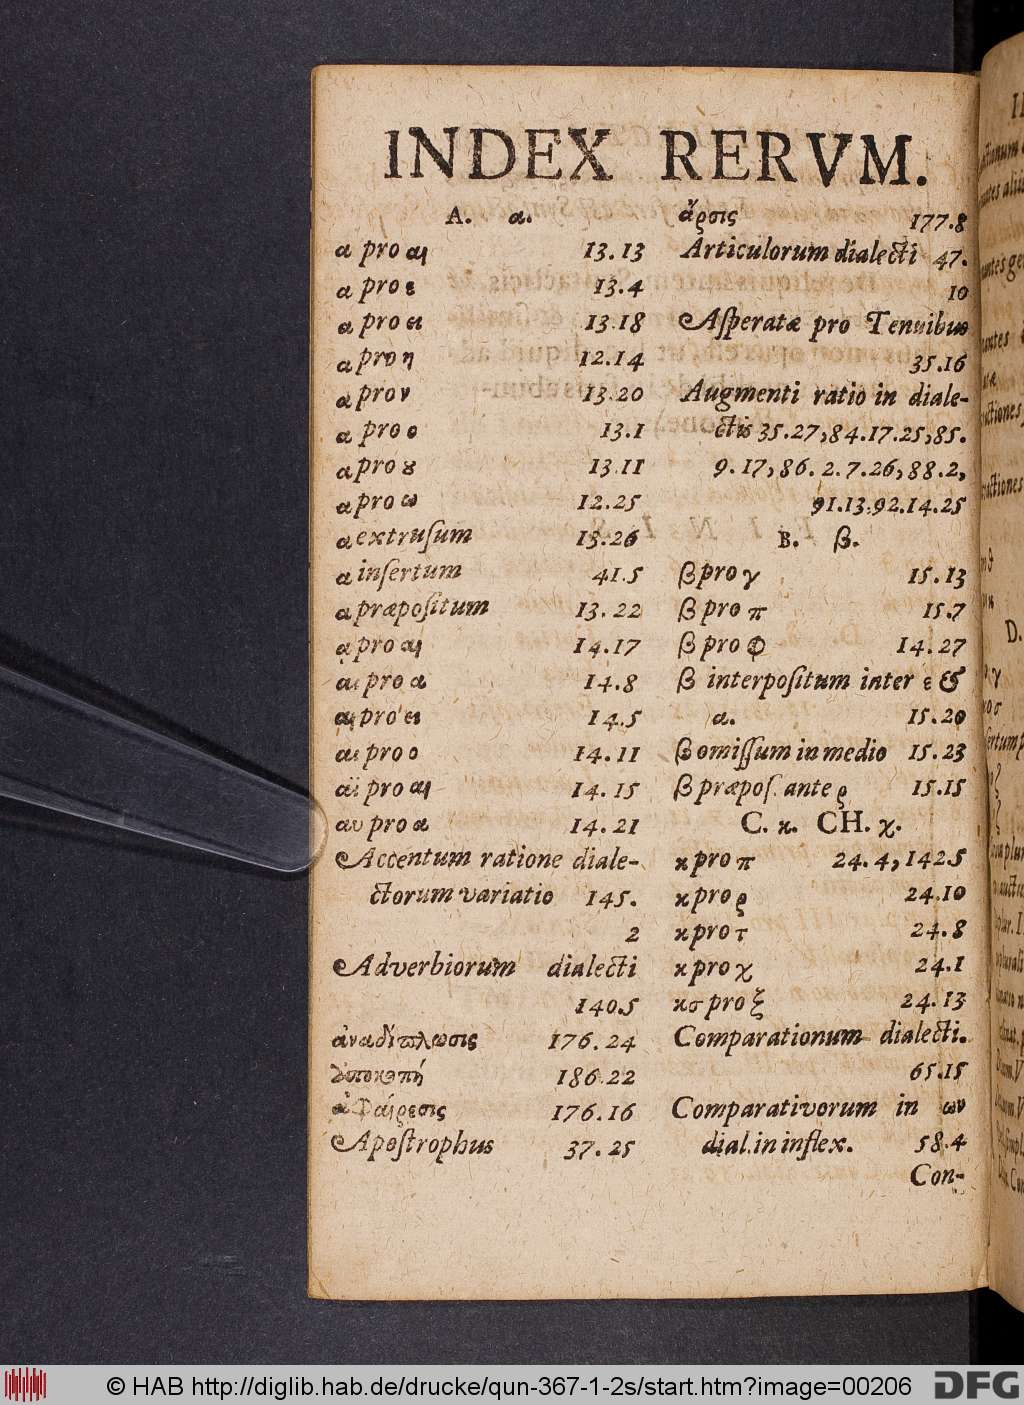 INDEX RERVM.
A. α.
α pro αι 13.13
α pro ε 13.4
α pro ει 13.18
α pro η 12.14
α pro ν 13.20
α pro ο 13.1
α pro ȣ 13.11
α pro ω 12.25
α extruſum 13.26
α inſertum 41.5
α præpoſitum 13.22
ᾳ pro αι 14.17
αι pro α 14.8
αι pro ει 14.5
αι pro ο 14.11
αϊ pro αι 14.15
αυ pro α 14.21
Accentum ratione diale-
ctorum variatio 145.
2
Adverbiorum dialecti
140.5
ἀναδίπλωσις 176.24
ἀποκοπή 186.22
ἀφαίρεσις 176.16
Apoſtrophus 37.25
ἄρσις 177.8
Articulorum dialecti 47.
10
Aſperatæ pro Tenuibus
35.16
Augmenti ratio in diale-
ctis 35.27, 84.17.25, 85.
9.17, 86.2.7.26, 88.2,
91.13.92.14.25
B. β.
β pro γ 15.13
β pro π 15.7
β pro φ 14.27
β interpoſitum inter ε &
α. 15.20
β omiſſum in medio 15.23
β præpoſ. ante ρ 15.15
C. κ. CH. χ.
κ pro π 24.4, 142.5
κ pro ρ 24.10
κ pro τ 24.8
κ pro χ 24.1
κσ pro ξ 24.13
Comparationum dialecti.
65.15
Comparativorum in ων
dial. in inflex. 58.4
Con-
D.
© HAB http://diglib.hab.de/drucke/qun-367-1-2s/start.htm?image=00206
DFG